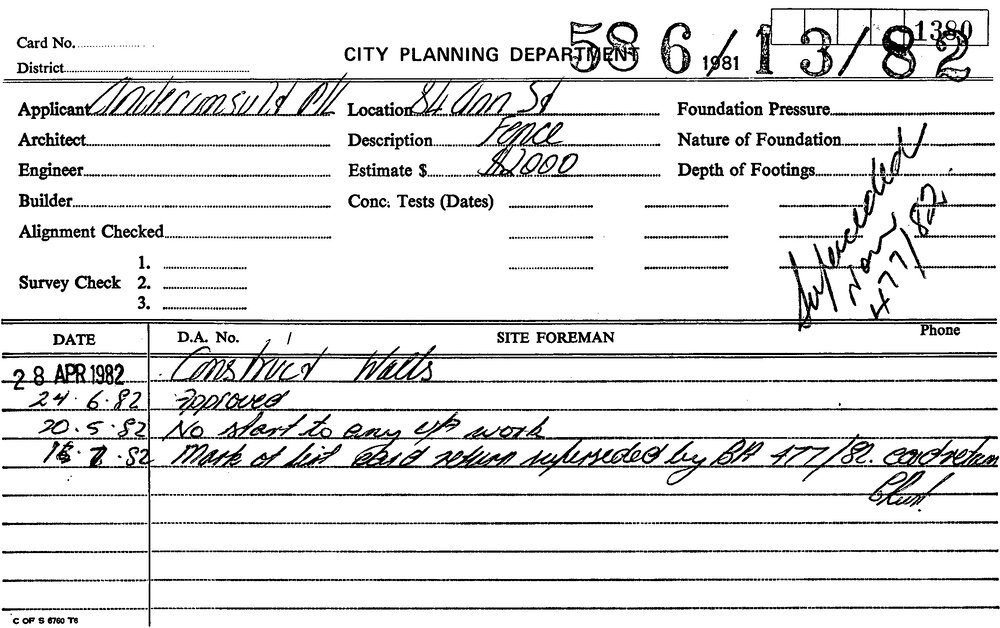 1380
586/13/82
Card No.
CITY PLANNING DEPARTMENT 1981
District
Applicant Anderconsult P/L Location 84 Ann St Foundation Pressure
Architect Description Fence Nature of Foundation
Engineer Estimate $ $2000 Depth of Footings
Builder Conc. Tests (Dates)
Alignment Checked
Superceded
Now
477/82
1.
Survey Check 2.
3.
DATE D.A. No. / SITE FOREMAN Phone
28 APR 1982 Construct Walls
24.6.82 Approved
20.5.82 No start to any work
.82 Mark of list card return superseded by BA 477/82. card return
C OF S 6760 T6